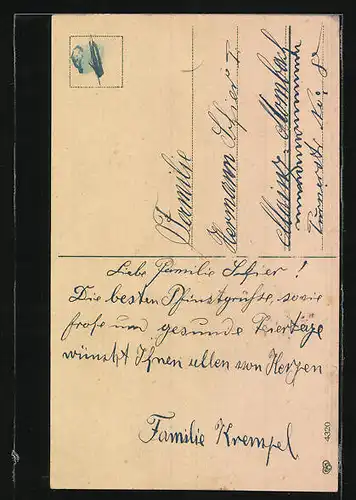 Familie
Hermann Schier I
Mainz-Mombach
No: 8
Liebe Familie Schier!
Die besten Pfinstgrühse, sowie
frohe und gesunde Feiertage
wünscht Ihnen allen von Herzen
Familie Krempel
4320